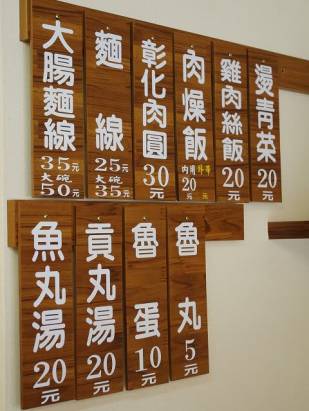 燙青菜
20元
雞肉絲飯
20元
肉燥飯
內用
20
元
元
彰化肉圓
30元
麵線
25元
大碗
35元
大腸麵線
35元
大碗
50元
魯丸
5元
魯蛋
10元
貢丸湯
20元
魚丸湯
20元